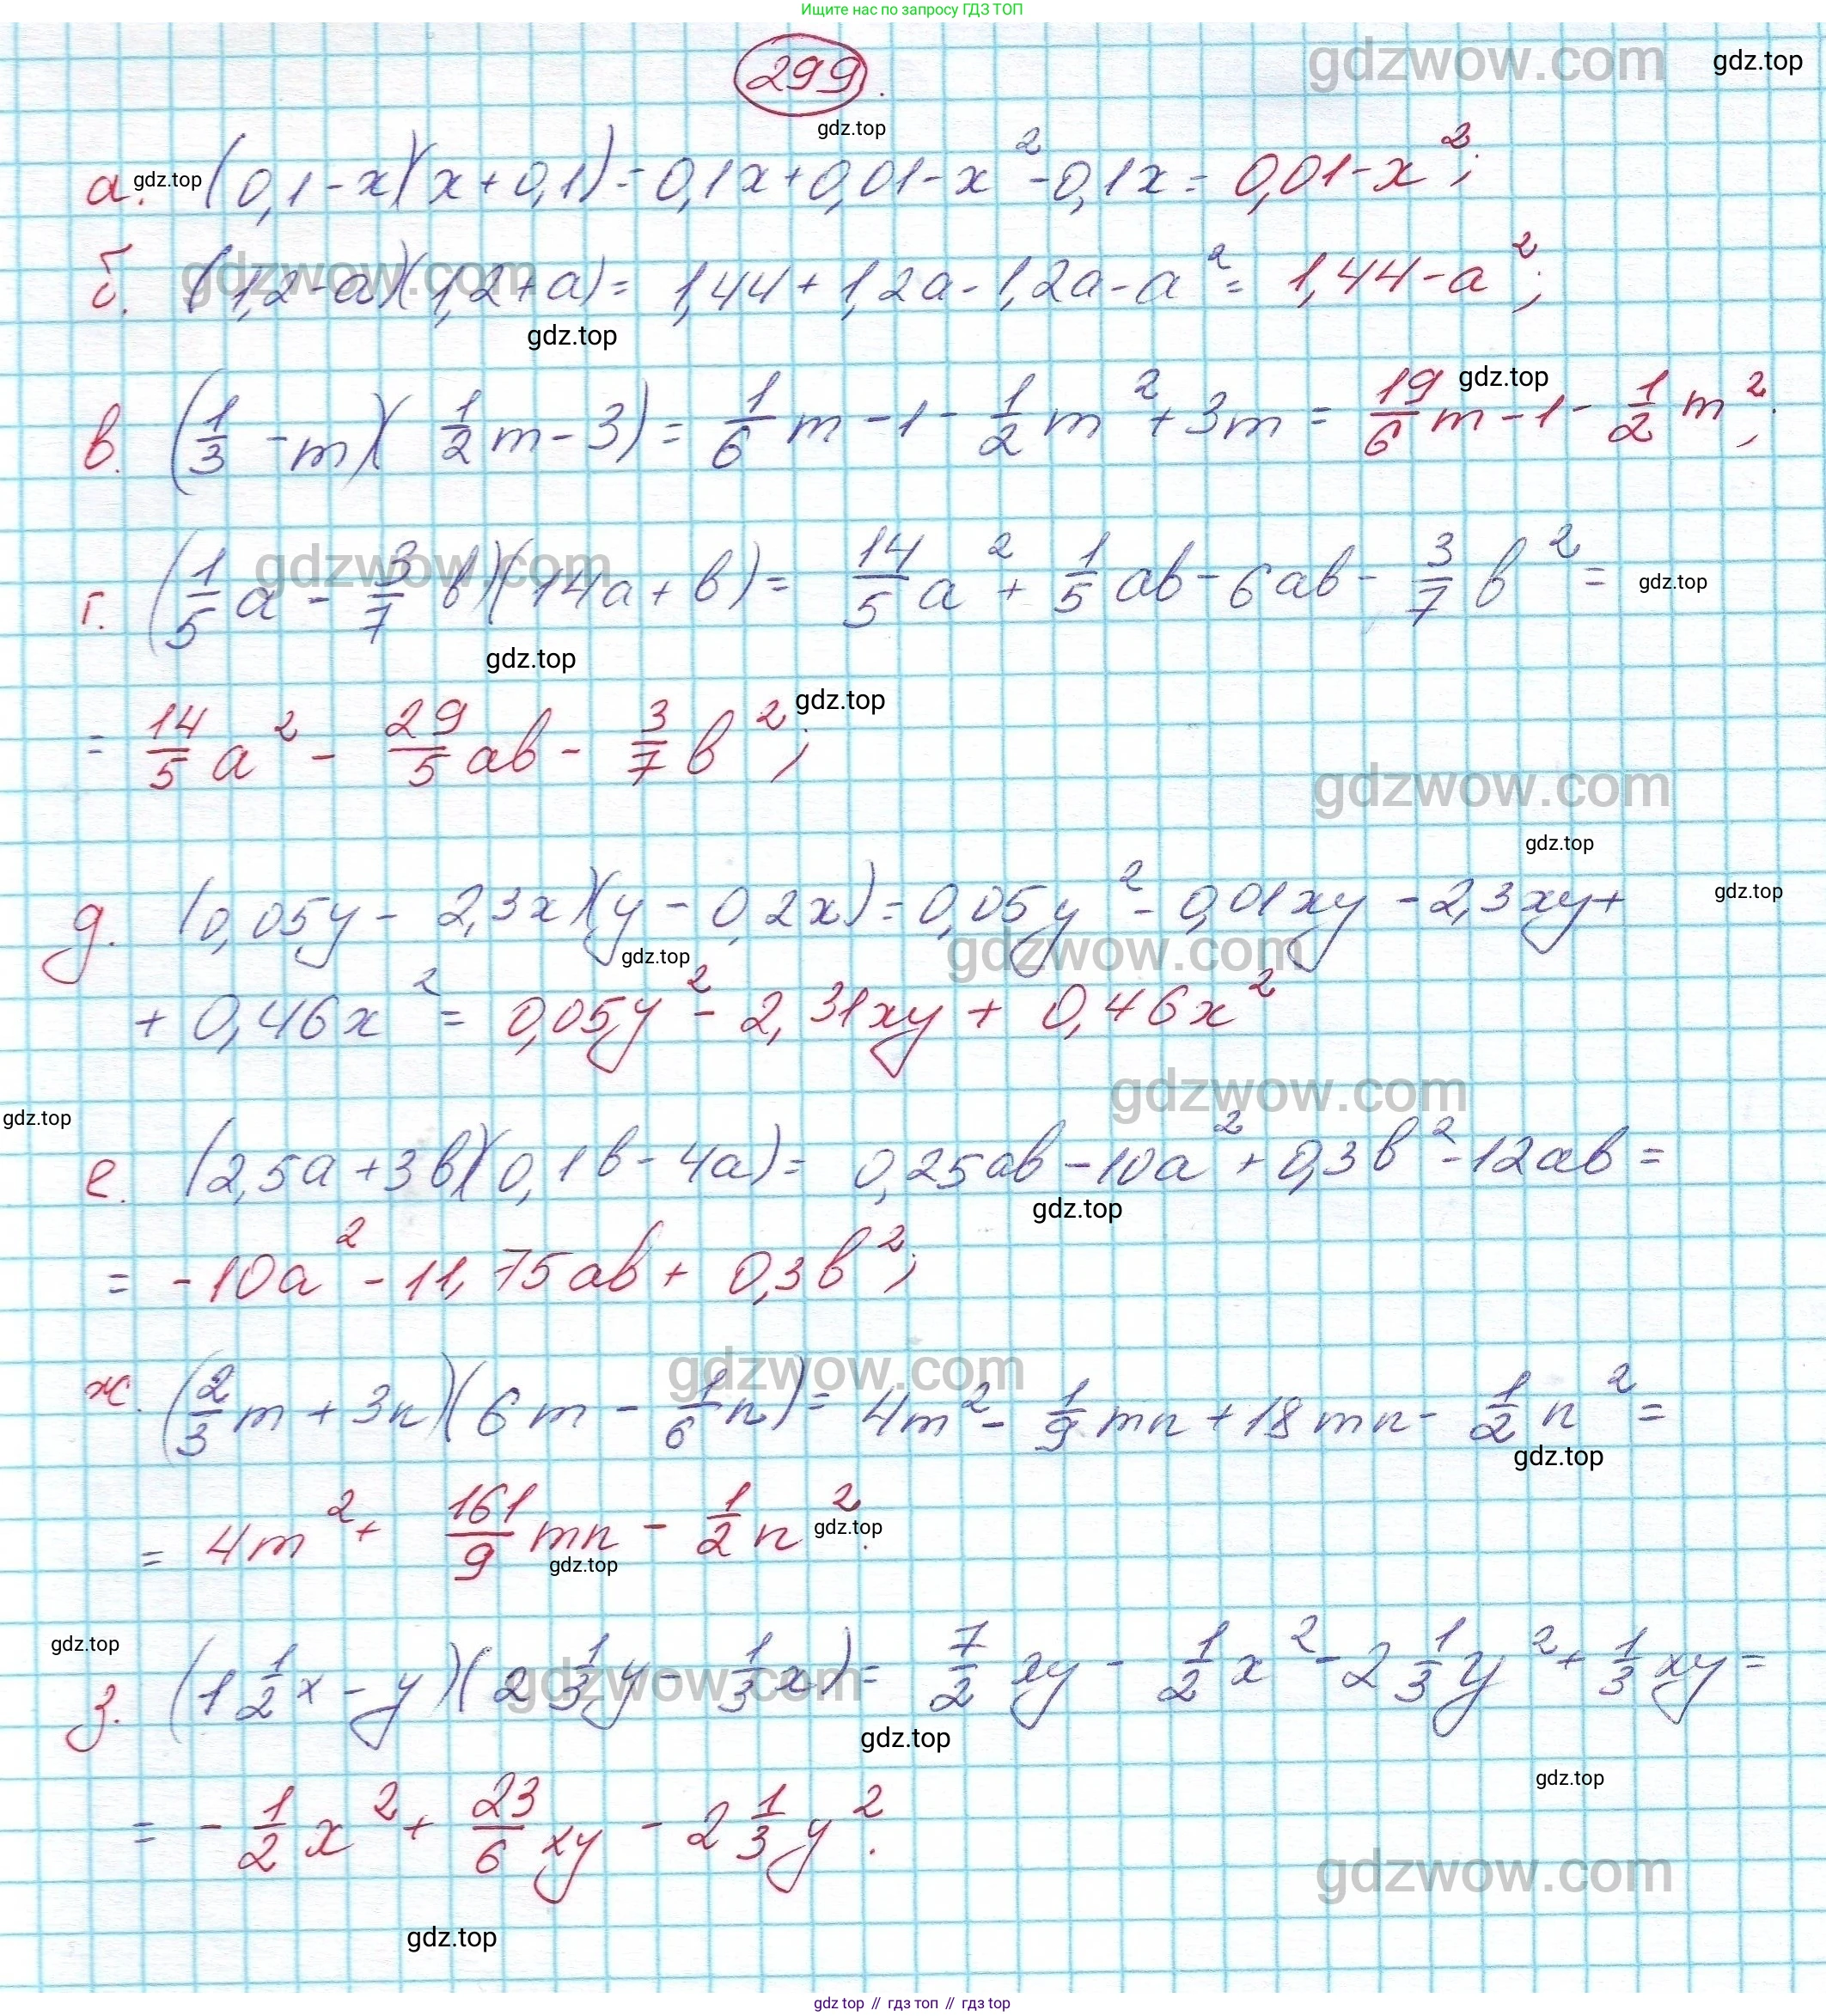 Ищите нас по запросу ГДЗ ТОП
299.
gdzwow.com
gdz.top
gdz.top
а. gdz.top (0,1-x)(x+0,1)=0,1x+0,01-x²-0,1x=0,01-x²;
gdzwow.com
б. (1,2-a)(1,2+a)=1,44+1,2a-1,2a-a²=1,44-a²;
gdz.top
gdz.top
в. (1/3-m)(1/2m-3)=1/6m-1-1/2m²+3m=19/6m-1-1/2m²;
gdzwow.com
г. (1/5a-3/7b)(14a+b)=14/5a²+1/5ab-6ab-3/7b²=
gdz.top
gdz.top
=14/5a²-29/5ab-3/7b²;
gdz.top
gdzwow.com
gdz.top
д. (0,05y-2,3x)(y-0,2x)=0,05y²-0,01xy-2,3xy+
gdz.top
gdz.top
gdzwow.com
+0,46x²=0,05y²-2,31xy+0,46x²
gdzwow.com
gdz.top
е. (2,5a+3b)(0,1b-4a)=0,25ab-10a²+0,3b²-12ab=
gdz.top
=-10a²-11,75ab+0,3b²;
gdzwow.com
ж. (2/3m+3n)(6m-1/6n)=4m²-1/9mn+18mn-1/2n²=
gdz.top
=4m²+161/9mn-1/2n².
gdz.top
gdz.top
gdz.top
з. (1 1/2x-y)(2 1/3y-1/3x)=7/2xy-1/2x²-2 1/3y²+1/3xy=
gdzwow.com
gdz.top
gdz.top
=-1/2x²+23/6xy-2 1/3y².
gdzwow.com
gdz.top
gdz top // гдз топ // гдз top